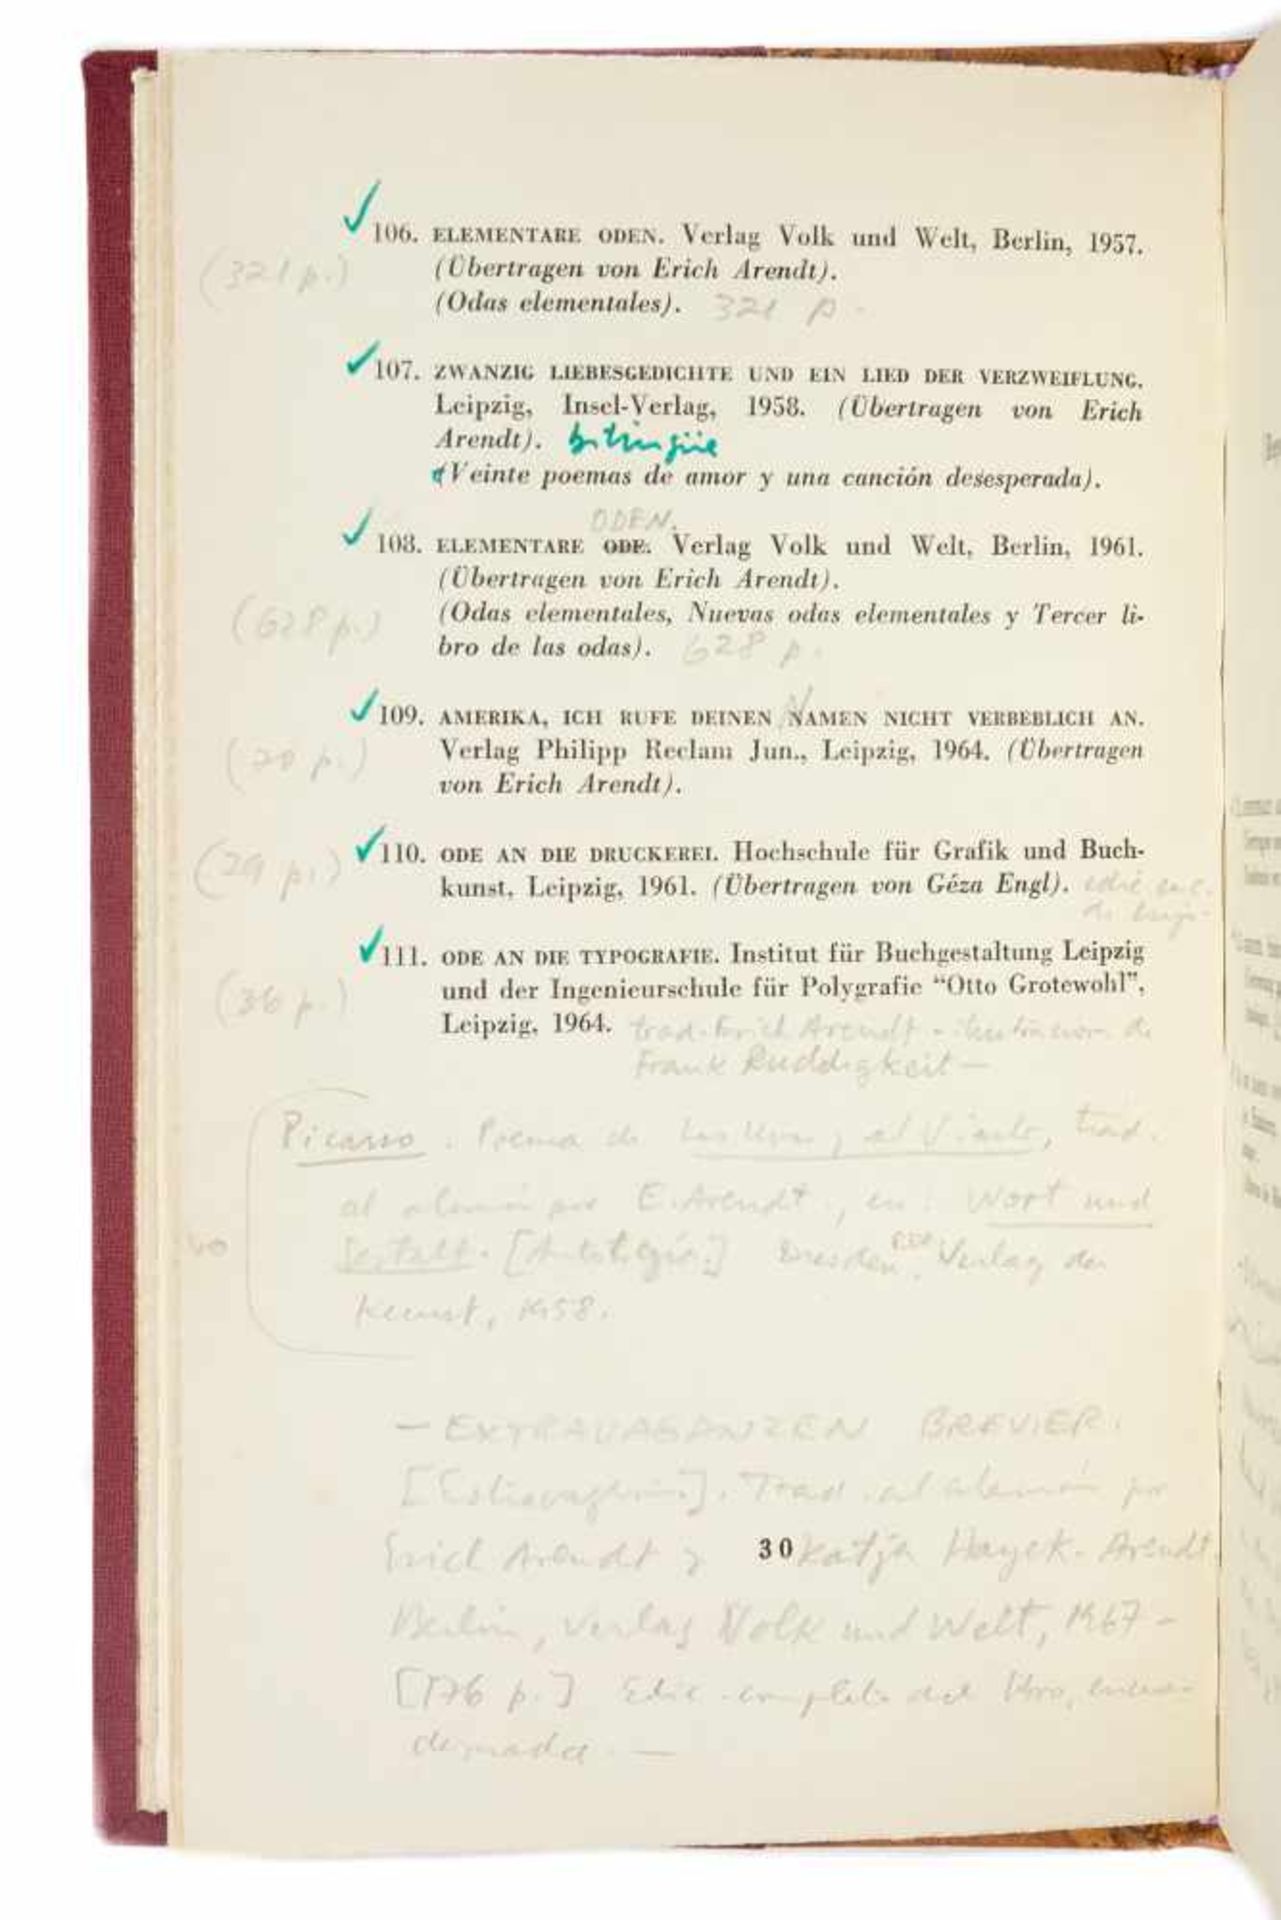 106. ELEMENTARE ODEN. Verlag Volk und Welt, Berlin, 1957.
(321 p.)
(Übertragen von Erich Arendt).
(Odas elementales). 321 p.
107. ZWANZIG LIEBESGEDICHTE UND EIN LIED DER VERZWEIFLUNG.
Leipzig, Insel-Verlag, 1958. (Übertragen von Erich
Arendt). bilingüe
(Veinte poemas de amor y una canción desesperada).
ODEN.
108. ELEMENTARE ODE. Verlag Volk und Welt, Berlin, 1961.
(Übertragen von Erich Arendt).
(628 p.)
(Odas elementales, Nuevas odas elementales y Tercer li-
bro de las odas). 628 p.
N
109. AMERIKA, ICH RUFE DEINEN NAMEN NICHT VERBEBLICH AN.
Verlag Philipp Reclam Jun., Leipzig, 1964. (Übertragen
von Erich Arendt).
110. ODE AN DIE DRUCKEREI. Hochschule für Grafik und Buch-
(29 p.)
kunst, Leipzig, 1961. (Übertragen von Géza Engl).
111. ODE AN DIE TYPOGRAFIE. Institut für Buchgestaltung Leipzig
und der Ingenieurschule für Polygrafie "Otto Grotewohl",
(36 p.)
Leipzig, 1964. trad. Erich Arendt - de
Frank Ruddigkeit —
Picasso. Poema de Las Uvas y el Viento, trad.
al alemán por E. Arendt, en: Wort und
Gestalt. [Antología.] Dresden, Verlag der
Kunst, 1958.
— EXTRAVAGANZEN BREVIER.
[Estravagario]. Trad. al alemán por
Erich Arendt y Katja Hayek-Arendt.
30
Berlin, Verlag Volk und Welt, 1967 -
[176 p.] Edic. completa del libro, encua-
dernada. —